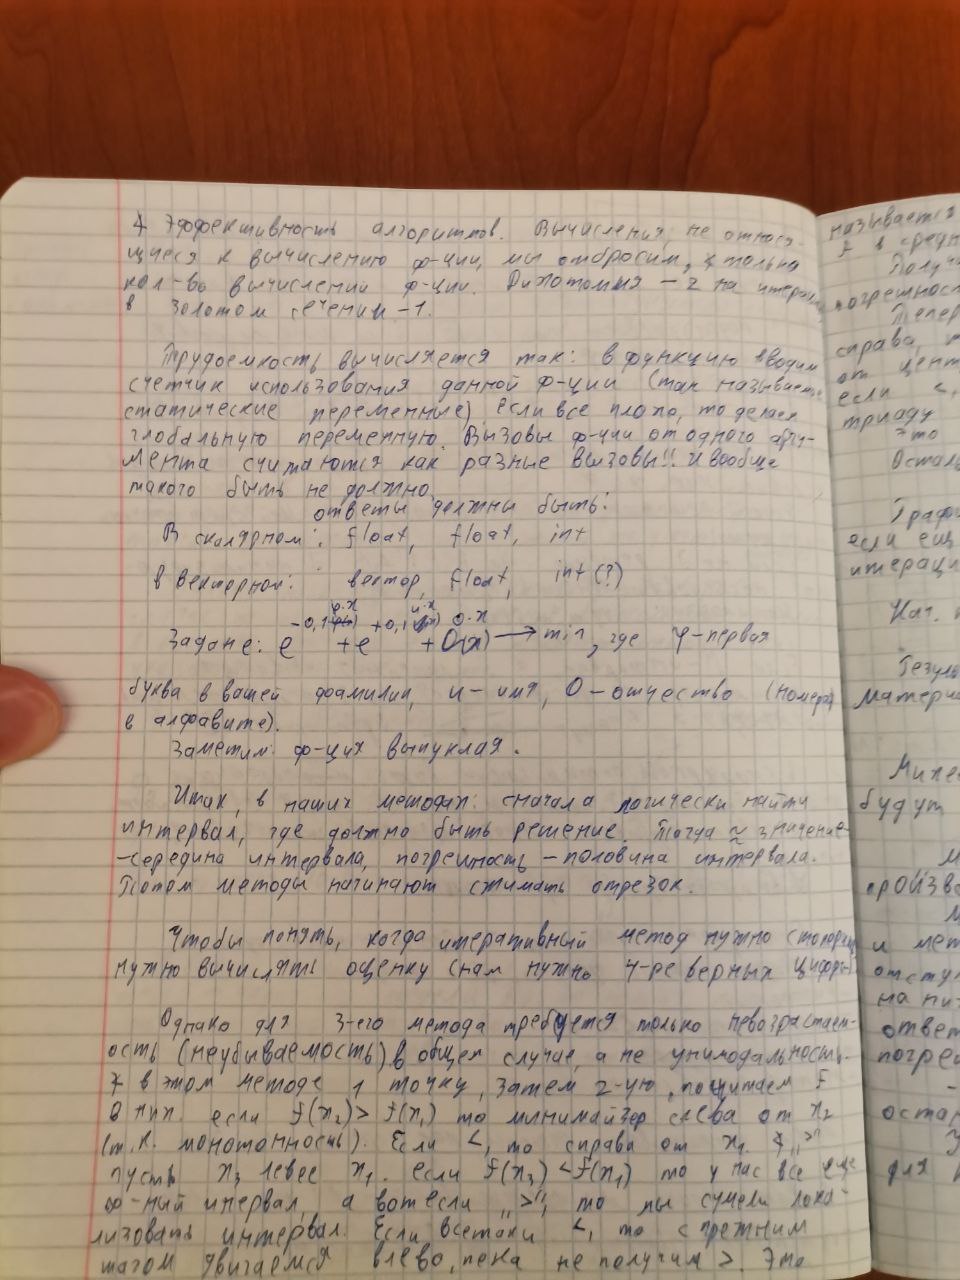 ∀ Эффективность алгоритмов. Вычисления, не относя-
щиеся к вычислению ф-ции, мы отбросим, ∀ только
кол-во вычислений ф-ции. Дихотомия - 2 на итерации
в Золотом сечении - 1.
Трудоемкость вычисляется так: в функцию вводим
счетчик использования данной ф-ции (так называем.
статические переменные) если все плохо, то делаем
глобальную переменную. Вызовы ф-ции от одного аргу-
мента считаются как разные вызовы!! И вообще
такого быть не должно.
ответы должны быть:
В скалярном: float, float, int
в векторном: вектор, float, int (?)
Задание: e^{-0,1 ф·x} + e^{+0,1 и·x} + О(x) → min, где φ-первая
буква в вашей фамилии, и - имя, О - отчество (номера
в алфавите).
Заметим: ф-ция выпуклая.
Итак, в наших методах: сначала логически найти
интервал, где должно быть решение. Тогда ≈ значение-
-середина интервала, погрешность - половина интервала.
Потом методы начинают сжимать отрезок.
Чтобы понять, когда итеративный метод нужно стопорить
нужно вычислять оценку (нам нужно 4-ре верных цифры)
Однако для 3-его метода требуется только невозрастаем-
ость (неубываемость) в общем случае, а не унимодальность.
∀ в этом методе 1 точку, затем 2-ую, посчитаем f
в них. если f(x₂) > f(x₁) то минимайзер слева от x₂
(т.к. монотонность). Если <, то справа от x₁. ∀ „>"
пусть x₃ левее x₁. если f(x₃) < f(x₁) то у нас все еще
ф-ный интервал, а вот если „>", то мы сумели лока-
лизовать интервал. Если всетаки <, то с прежним
шагом двигаемся влево, пока не получим >. Это
называется
∀ в средн
Получ
погрешност
Тепер
справа, т
от цент
если <,
триаду
это
Осталь
График
если ещ
итераци
Кат.
Резуль
материа
Михе
будут
произв
и мет
отсту
на ни
ответ
погре
остан
для